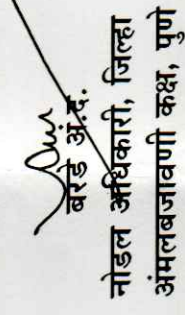 बरडे अं.द.
नोडल अधिकारी, जिल्हा
अंमलबजावणी कक्ष, पुणे